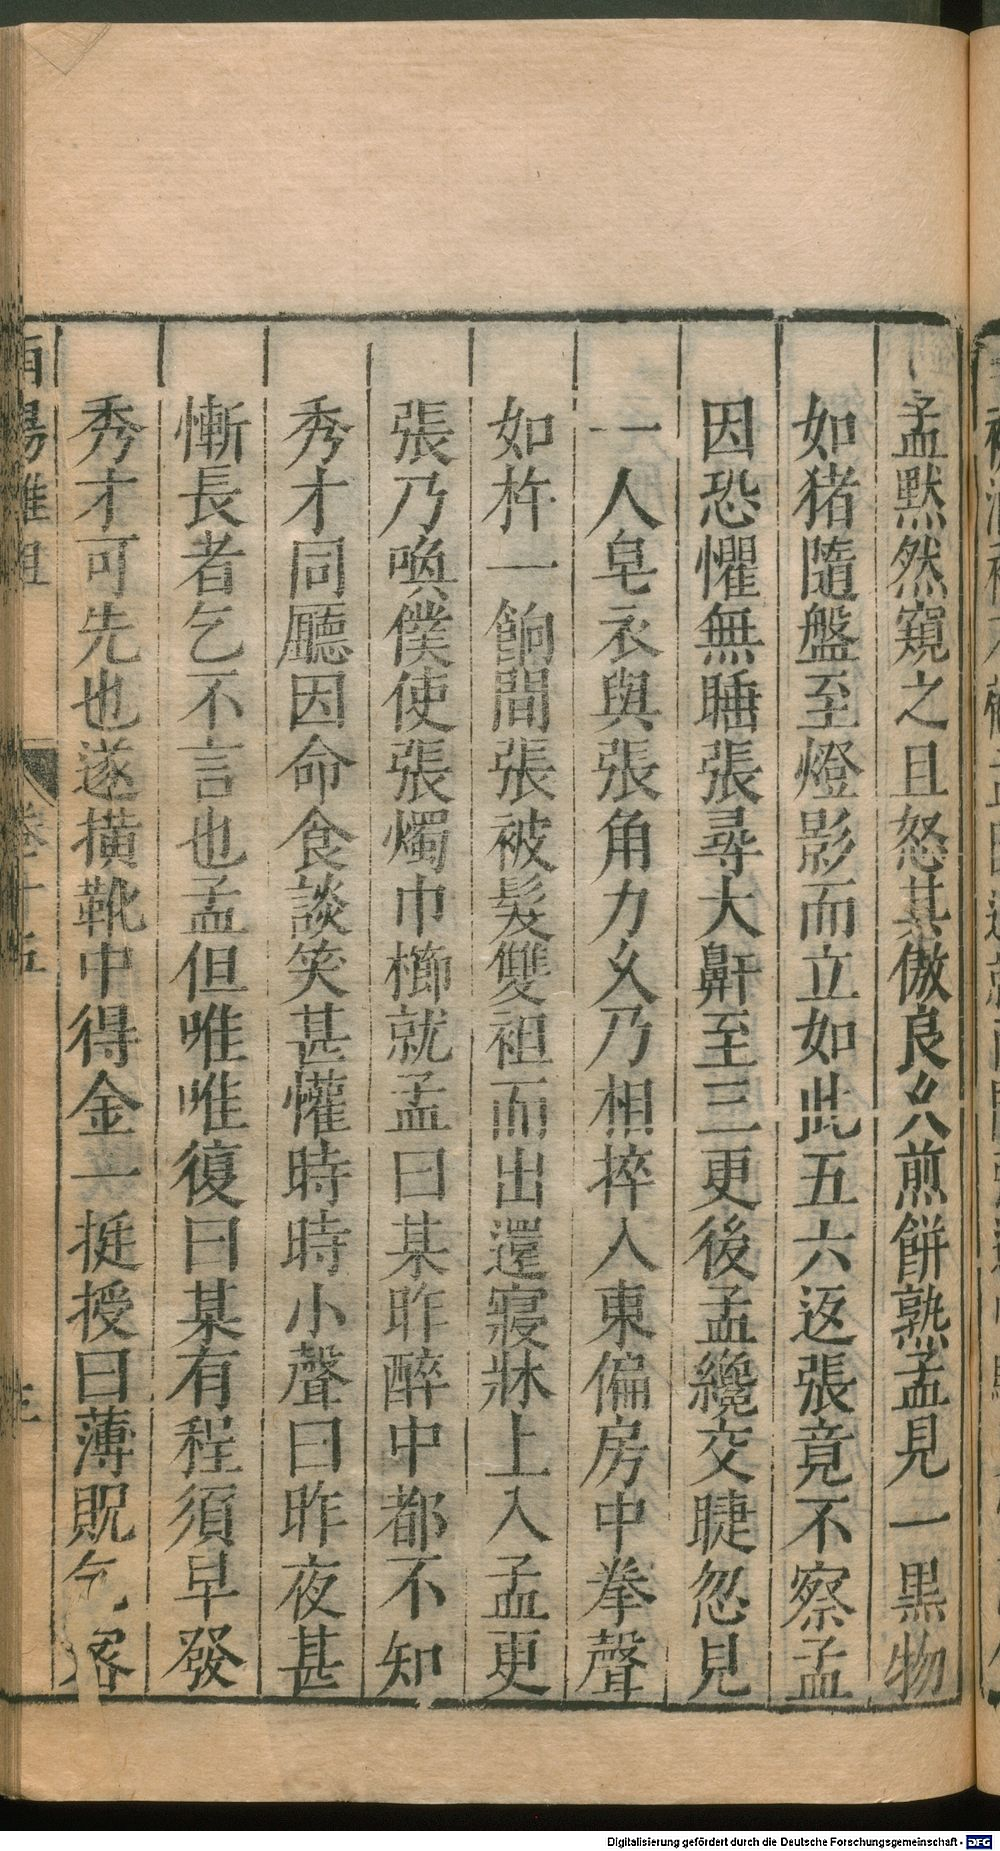 孟默然窺之且怒其傲良久煎餅熟孟見一黒物
如猪隨盤至燈影而立如此五六返張竟不察孟
因恐懼無睡張尋大鼾至三更後孟纔交睫忽見
一人皂衣與張角力久乃相捽入東偏房中拳聲
如杵一餉間張被髮雙袒而出還寢牀上入孟更
張乃喚僕使張燭巾櫛就孟曰某昨醉中都不知
秀才同廳因命食談笑甚懽時時小聲曰昨夜甚
慚長者乞不言也孟但唯唯復曰某有程須早發
秀才可先也遂摸靴中得金一挺授曰薄貺乞密
酉陽雜俎
卷十五
Digitalisierung gefördert durch die Deutsche Forschungsgemeinschaft - DFG